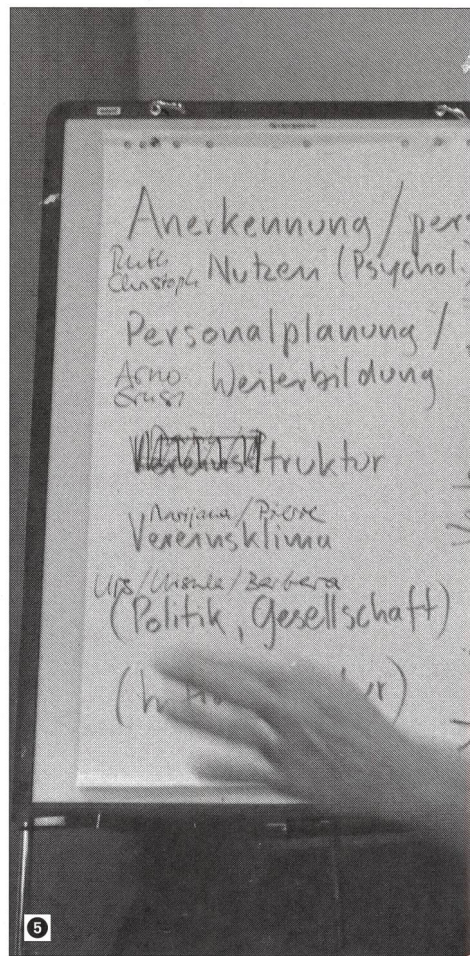 Anerkennung / pers
Ruth
Christoph Nutzen (Psychol.)
Personalplanung /
Arno
Ernst Weiterbildung
struktur
Marijana / Pierre
Vereinsklima
Urs / Ursula / Barbara
(Politik, Gesellschaft)
5